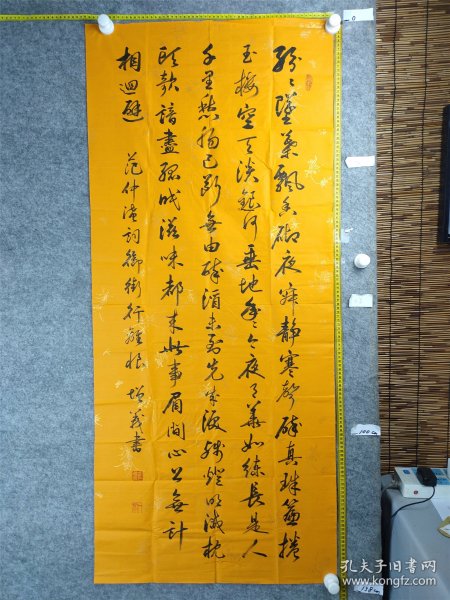 紛〻墜葉飄香砌夜寂靜寒聲碎真珠簾捲
玉樓空天淡銀河垂地年〻今夜月華如練長是人
千里愁腸已斷無由醉酒未到先成淚殘燈明滅枕
頭欹諳盡孤眠滋味都來此事眉間心上無計
相迴避 范仲淹詞御街行離恨 增義書
0
100cm
138cm
孔夫子旧书网
www.kongfz.com